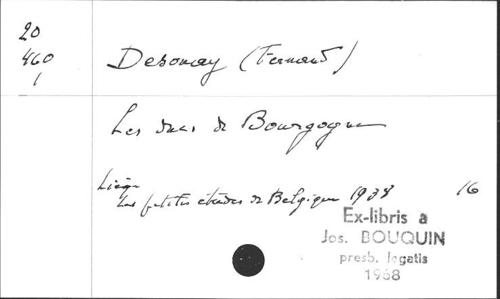 20
460
1
Desonay (Fernand)
Les ducs de Bourgogne
Liège
Les petites études de Belgique 1938 16
Ex-libris a
Jos. BOUQUIN
presb. legatis
1968